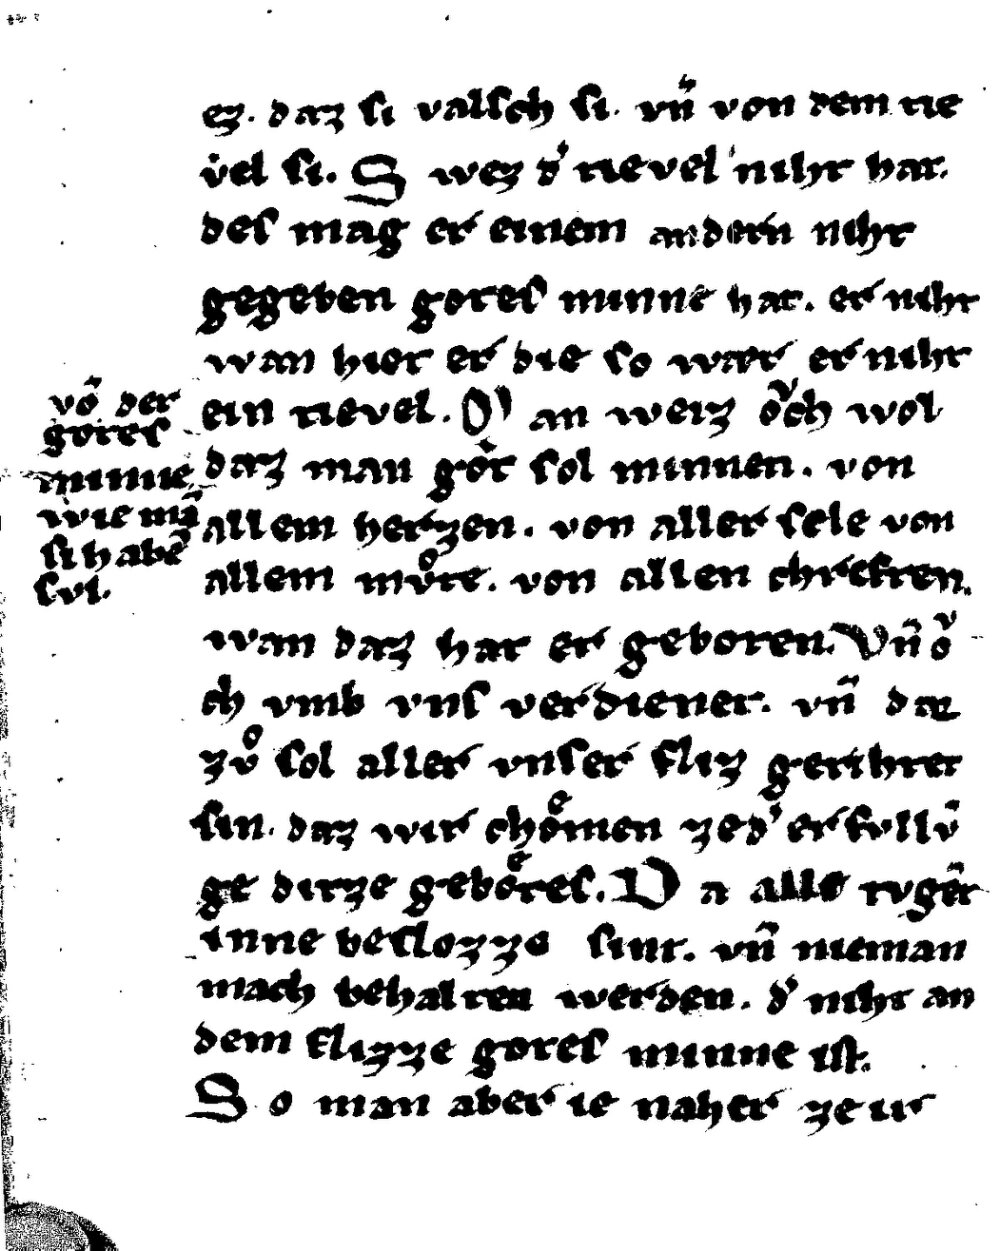 ez. daz si valsch si. vn̄ von dem tie
vel si. Swez d' tievel niht hat.
des mag er einem andern niht
gegeben gotes minne hat. er niht
wan hiet er die so wær er niht
ein tievel. Man weiz oͮch wol
daz man got sol minnen. von
allem herzen. von aller sele von
allem mvͦte. von allen chreften.
wan daz hat er geboten. Vn̄ oͮ
ch vmb vns verdienet. vn̄ dar
zvͦ sol aller vnser fliz gerihtet
sin. daz wir choͤmen ze d' erfullv̄
ge ditze geboͤtes. Da alle tvgēt
inne beslozze sint. vn̄ nieman
mach behalten werden. d' niht an
dem flizze gotes minne ist.
So man aber ie naher ze ir
vō der
gotes
minne
wie mā
si habē
svl.